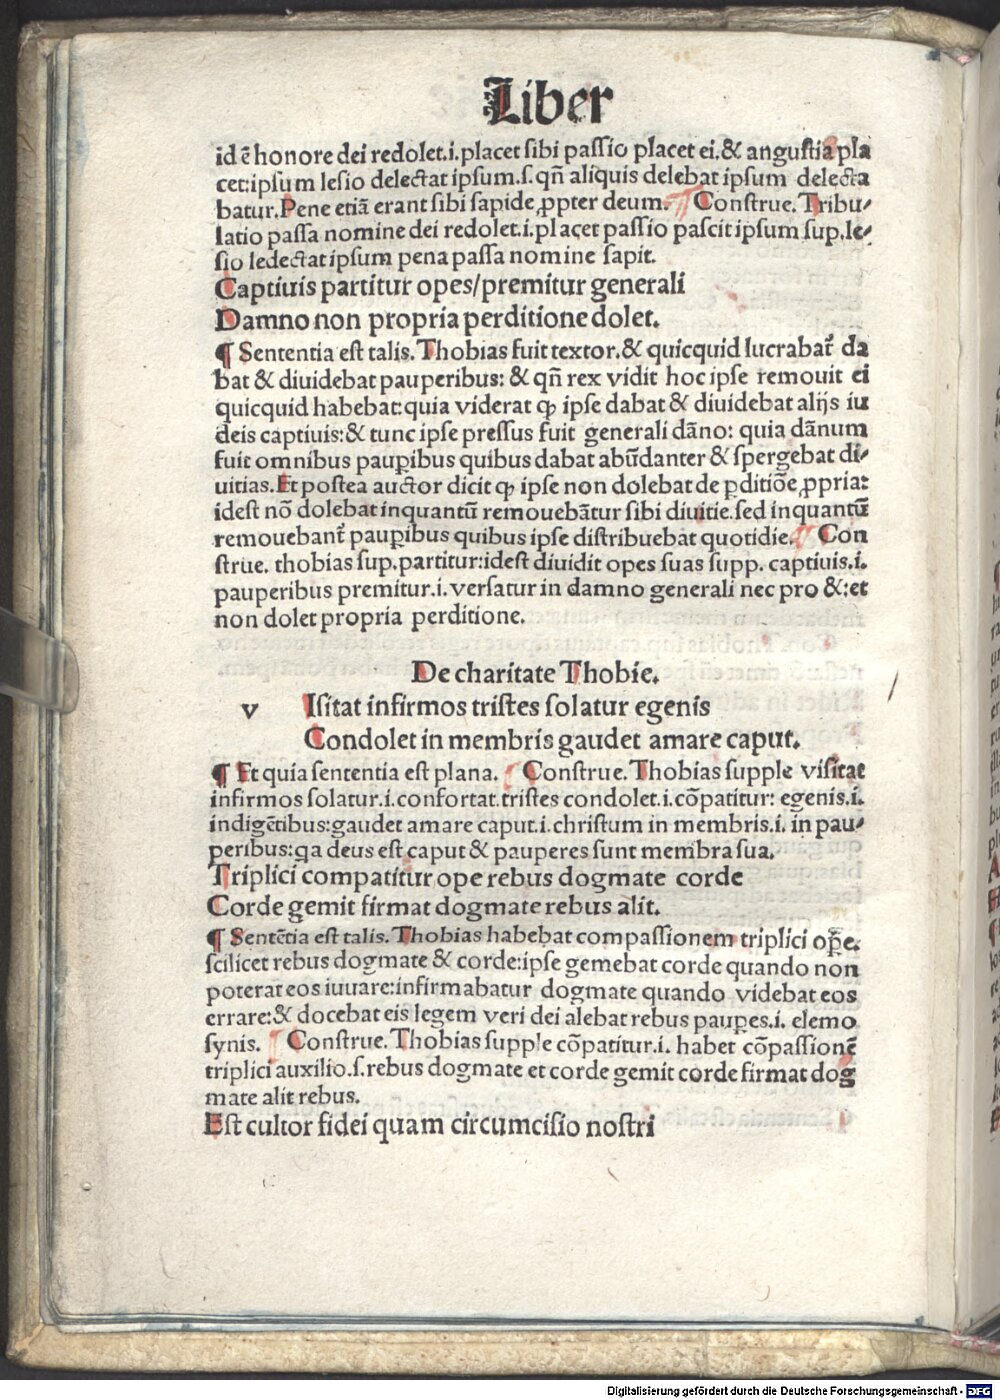 Liber
id ē honore dei redolet.i.placet sibi passio placet ei.& angustia pla
cet:ipsum lesio delectat ipsum.s.qñ aliquis delebat ipsum delecta
batur.Pene etiā erant sibi sapide ꝓpter deum. ¶ Construe.Tribu⸗
latio passa nomine dei redolet.i.placet passio pascit ipsum sup.le⸗
sio ledectat ipsum pena passa nomine sapit.
Captiuis partitur opes/premitur generali
Damno non propria perditione dolet.
¶ Sententia est talis.Thobias fuit textor.& quicquid lucrabat᷑ da
bat & diuidebat pauperibus: & qñ rex vidit hoc ipse remouit ei
quicquid habebat:quia viderat ꝙ ipse dabat & diuidebat alijs iu
deis captiuis:& tunc ipse pressus fuit generali dāno: quia dānum
fuit omnibus pauꝑibus quibus dabat abūdanter & spergebat di⸗
uitias.Et postea auctor dicit ꝙ ipse non dolebat de ꝑditiōe ꝓpria:
idest nō dolebat inquantū remouebātur sibi diuitie.sed inquantū
remouebant᷑ pauꝑibus quibus ipse distribuebat quotidie. ¶ Con
strue. thobias sup.partitur:idest diuidit opes suas supp. captiuis.i.
pauperibus premitur.i.versatur in damno generali nec pro &:et
non dolet propria perditione.
De charitate Thobie.
v Isitat infirmos tristes solatur egenis
Condolet in membris gaudet amare caput.
¶ Et quia sententia est plana. ¶ Construe.Thobias supple visitat
infirmos solatur.i.confortat.tristes condolet.i.cōpatitur: egenis.i.
indigētibus:gaudet amare caput.i.christum in membris.i. in pau⸗
peribus:qa deus est caput & pauperes sunt membra sua.
Triplici compatitur ope rebus dogmate corde
Corde gemit firmat dogmate rebus alit.
¶ Sentētia est talis.Thobias habebat compassionem triplici ope.
scilicet rebus dogmate & corde:ipse gemebat corde quando non
poterat eos iuuare:infirmabatur dogmate quando videbat eos
errare:& docebat eis legem veri dei alebat rebus pauꝑes.i. elemo
synis. ¶ Construe.Thobias supple cōpatitur.i. habet cōpassionē
triplici auxilio.s.rebus dogmate et corde gemit corde firmat dog
mate alit rebus.
Est cultor fidei quam circumcisio nostri
Digitalisierung gefördert durch die Deutsche Forschungsgemeinschaft - DFG